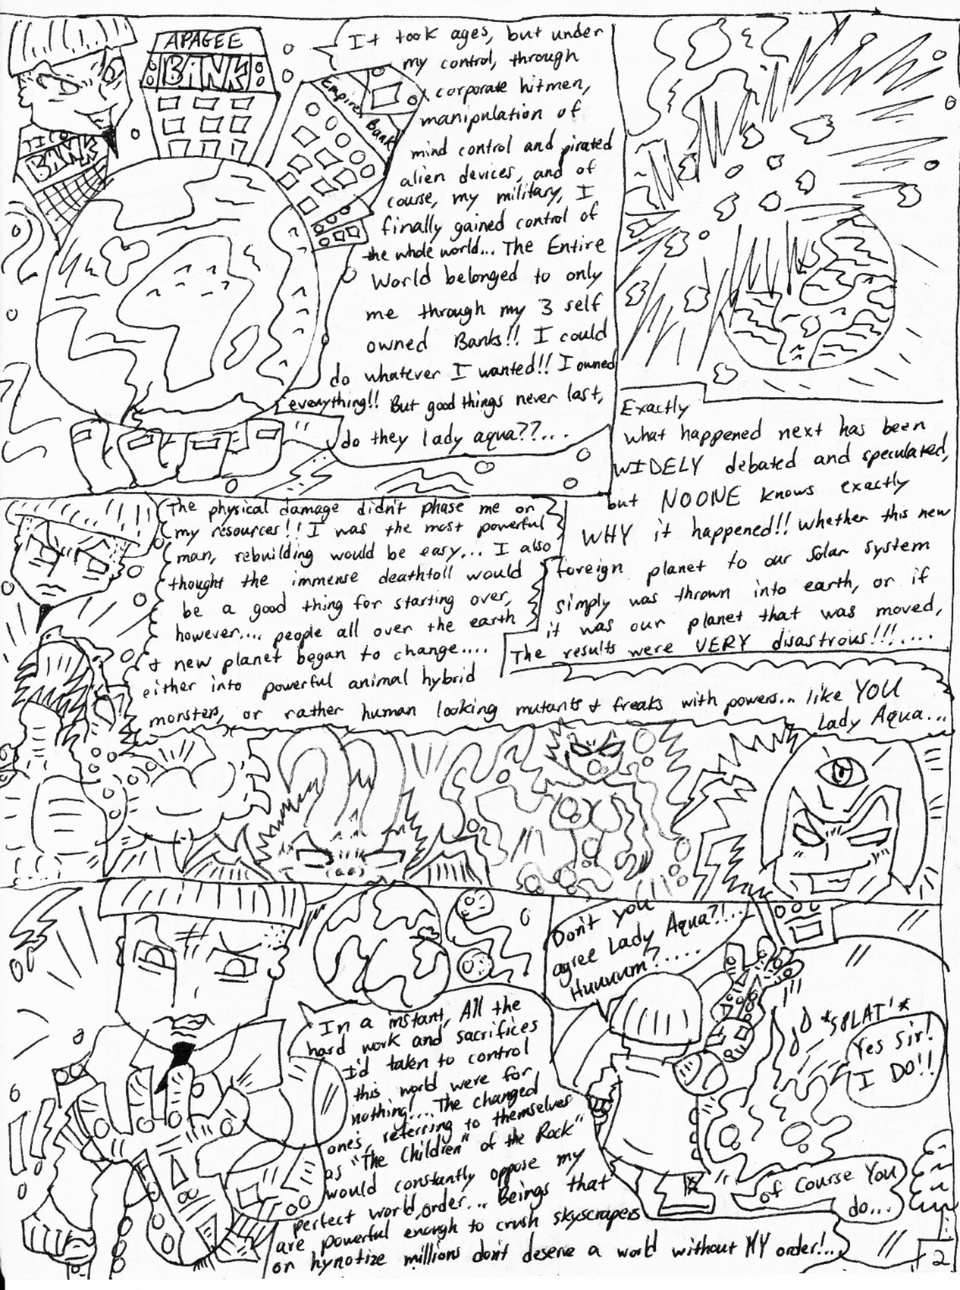 APAGEE
BANK
Empire Bank
BANK
It took ages, but under
my control, through
corporate hitmen,
manipulation of
mind control and pirated
alien devices, and of
course, my military, I
finally gained control of
the whole world... The Entire
World belonged to only
me through my 3 self
owned Banks!! I could
do whatever I wanted!! I owned
everything!! But good things never last,
do they lady aqua??...
Exactly
what happened next has been
WIDELY debated and speculated,
but NOONE knows exactly
WHY it happened!! Whether this new
foreign planet to our solar system
simply was thrown into earth, or if
it was our planet that was moved,
The results were VERY disastrous!!!....
The physical damage didn't phase me or
my resources!! I was the most powerful
man, rebuilding would be easy... I also
thought the immense deathtoll would
be a good thing for starting over,
however.... people all over the earth
& new planet began to change....
either into powerful animal hybrid
monsters, or rather human looking mutants & freaks with powers... like YOU
Lady Aqua...
In a instant, All the
hard work and sacrifices
I'd taken to control
this world were for
nothing.... The changed
ones, referring to themselves
as "The Children" of the Rock"
would constantly oppose my
perfect world order... Beings that
are powerful enough to crush skyscrapers
or hynotize millions don't deserve a world without MY order!...
Don't you
agree Lady Aqua?!...
Huuuum?.....
*SPLAT*
Yes Sir!
I DO!!
of Course You
do...
2